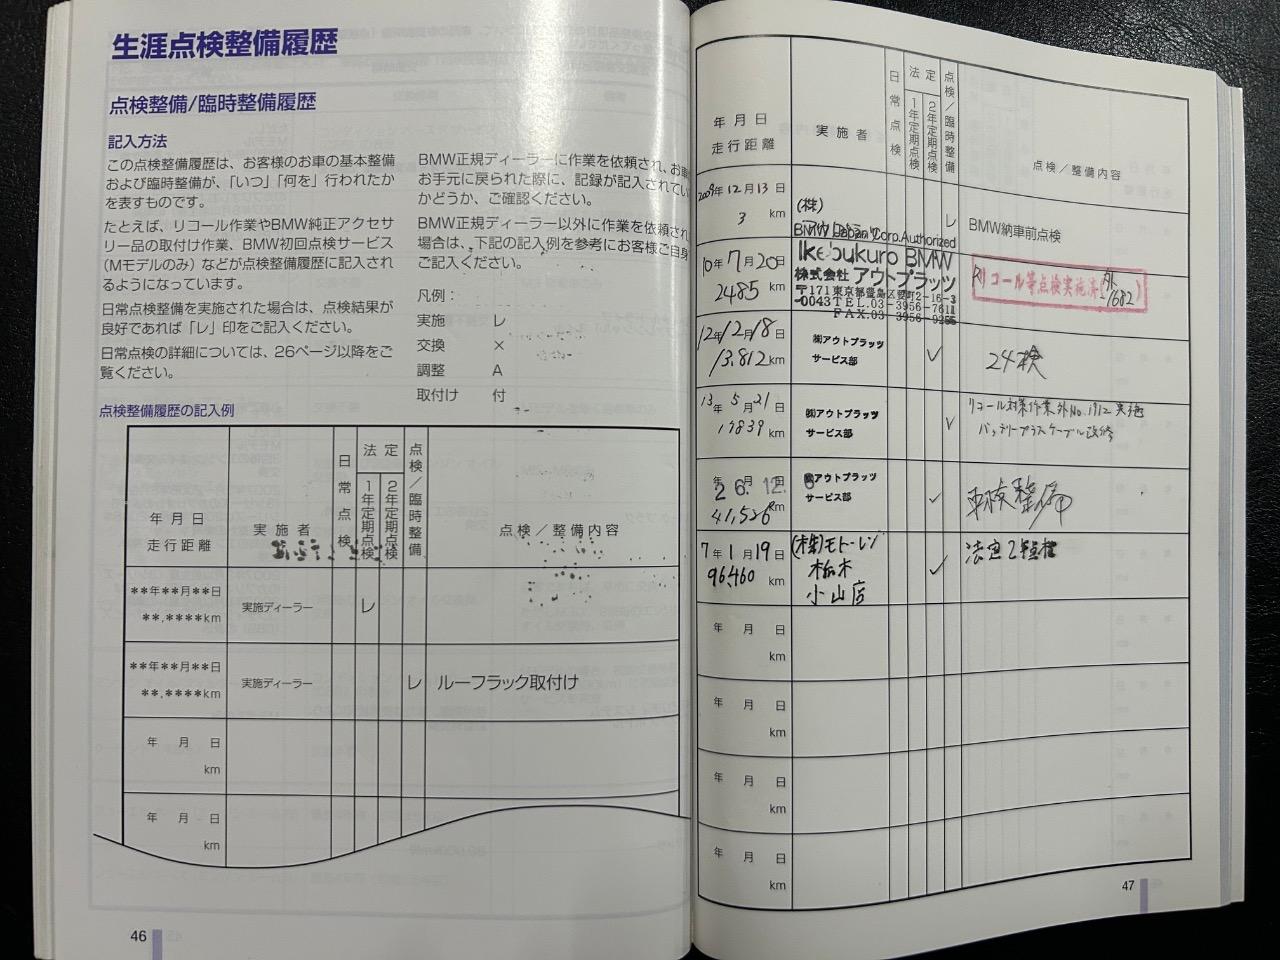 生涯点検整備履歴
点検整備/臨時整備履歴
記入方法
この点検整備履歴は、お客様のお車の基本整備
および臨時整備が、「いつ」「何を」行われたか
を表すものです。
たとえば、リコール作業やBMW純正アクセサ
リー品の取付け作業、BMW初回点検サービス
(Mモデルのみ) などが点検整備履歴に記入され
るようになっています。
日常点検を実施された場合は、点検結果が
良好であれば「レ」印をご記入ください。
日常点検の詳細については、26ページ以降をご
覧ください。
BMW正規ディーラーに作業を依頼され、お車
お手元に戻られた際に、記録が記入されてい
かどうか、ご確認ください。
BMW正規ディーラー以外に作業を依頼され
場合は、下記の記入例を参考にお客様ご自身
ご記入ください。
凡例：
実施 レ
交換 ×
調整 A
取付け 付
点検整備履歴の記入例
年 月 日
走行距離
実 施 者
日常点検
法 定
1年定期点検
2年定期点検
点検／臨時整備
点検／整備内容
**年**月**日
**.****km
実施ディーラー
レ
**年**月**日
**.****km
実施ディーラー
レ
ルーフラック取付け
年 月 日
km
年 月 日
km
46
年 月 日
走行距離
実 施 者
日常点検
法 定
1年定期点検
2年定期点検
点検／臨時整備
点検／整備内容
2009年12月13日
3 km
(株)
レ
BMW納車前点検
BMW Japan Corp.Authorized
Ikebukuro BMW
株式会社 アウトプラッツ
〒171 東京都豊島区要町2-16-3
-0043 TEL.03-3956-7811
FAX.03-3956-9255
10年7月20日
2485 km
リコール等点検実施済
外
1682
12年12月18日
13.812 km
㈱アウトプラッツ
サービス部
✓
24検
13年5月21日
19839 km
㈱アウトプラッツ
サービス部
✓
リコール対策作業 外No.1912 実施
バッテリープラスケーブル改修
年 月 日
26.12.
41,526 km
㈱アウトプラッツ
サービス部
✓
車検整備
7年1月19日
96,460 km
(株)モトーレン
栃木
小山店
✓
法定2年点検
年 月 日
km
年 月 日
km
年 月 日
km
年 月 日
km
47